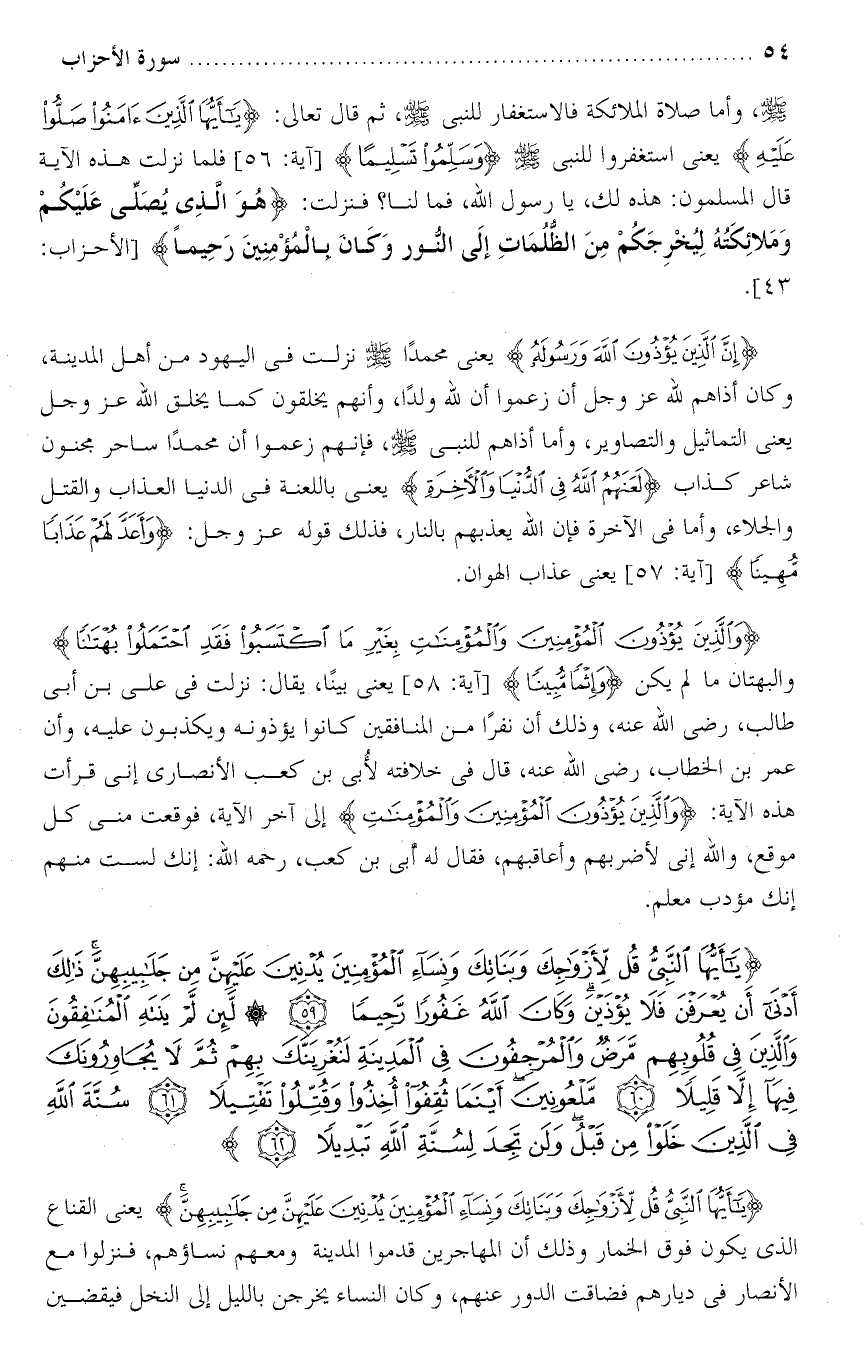 ٥٤ ........................................ سورة الأحزاب
ﷺ، وأما صلاة الملائكة فالاستغفار للنبى ﷺ، ثم قال تعالى: ﴿يَٰٓأَيُّهَا ٱلَّذِينَ ءَامَنُوا۟ صَلُّوا۟
عَلَيْهِ﴾ يعنى استغفروا للنبى ﷺ ﴿وَسَلِّمُوا۟ تَسْلِيمًا﴾ [آية: ٥٦] فلما نزلت هذه الآية
قال المسلمون: هذه لك، يا رسول الله، فما لنا؟ فنزلت: ﴿هُوَ الَّذِى يُصَلِّى عَلَيْكُمْ
وَمَلائِكَتُهُ لِيُخْرِجَكُمْ مِنَ الظُّلُمَاتِ إِلَى النُّور وَكَانَ بِالْمُؤْمِنِينَ رَحِيماً﴾ [الأحزاب:
٤٣].
﴿إِنَّ ٱلَّذِينَ يُؤْذُونَ ٱللَّهَ وَرَسُولَهُۥ﴾ يعنى محمدًا ﷺ نزلت فى اليهود من أهل المدينة،
وكان أذاهم لله عز وجل أن زعموا أن لله ولدًا، وأنهم يخلقون كما يخلق الله عز وجل
يعنى التماثيل والتصاوير، وأما أذاهم للنبى ﷺ، فإنهم زعموا أن محمدًا ساحر مجنون
شاعر كذاب ﴿لَعَنَهُمُ ٱللَّهُ فِى ٱلدُّنْيَا وَٱلْءَاخِرَةِ﴾ يعنى باللعنة فى الدنيا العذاب والقتل
والجلاء، وأما فى الآخرة فإن الله يعذبهم بالنار، فذلك قوله عز وجل: ﴿وَأَعَدَّ لَهُمْ عَذَابًا
مُّهِينًا﴾ [آية: ٥٧] يعنى عذاب الهوان.
﴿وَٱلَّذِينَ يُؤْذُونَ ٱلْمُؤْمِنِينَ وَٱلْمُؤْمِنَٰتِ بِغَيْرِ مَا ٱكْتَسَبُوا۟ فَقَدِ ٱحْتَمَلُوا۟ بُهْتَٰنًا﴾
والبهتان ما لم يكن ﴿وَإِثْمًا مُّبِينًا﴾ [آية: ٥٨] يعنى بينًا، يقال: نزلت فى على بن أبى
طالب، رضى الله عنه، وذلك أن نفرًا من المنافقين كانوا يؤذونه ويكذبون عليه، وأن
عمر بن الخطاب، رضى الله عنه، قال فى خلافته لأُبى بن كعب الأنصارى إنى قرأت
هذه الآية: ﴿وَٱلَّذِينَ يُؤْذُونَ ٱلْمُؤْمِنِينَ وَٱلْمُؤْمِنَٰتِ﴾ إلى آخر الآية، فوقعت منى كل
موقع، والله إنى لأضربهم وأعاقبهم، فقال له أبى بن كعب، رحمه الله: إنك لست منهم
إنك مؤدب معلم.
﴿يَٰٓأَيُّهَا ٱلنَّبِىُّ قُل لِّأَزْوَٰجِكَ وَبَنَاتِكَ وَنِسَآءِ ٱلْمُؤْمِنِينَ يُدْنِينَ عَلَيْهِنَّ مِن جَلَٰبِيبِهِنَّ ۚ ذَٰلِكَ
أَدْنَىٰٓ أَن يُعْرَفْنَ فَلَا يُؤْذَيْنَ ۗ وَكَانَ ٱللَّهُ غَفُورًا رَّحِيمًا ۝٥٩ ۞ لَّئِن لَّمْ يَنتَهِ ٱلْمُنَٰفِقُونَ
وَٱلَّذِينَ فِى قُلُوبِهِم مَّرَضٌ وَٱلْمُرْجِفُونَ فِى ٱلْمَدِينَةِ لَنُغْرِيَنَّكَ بِهِمْ ثُمَّ لَا يُجَاوِرُونَكَ
فِيهَآ إِلَّا قَلِيلًا ۝٦٠ مَّلْعُونِينَ ۖ أَيْنَمَا ثُقِفُوٓا۟ أُخِذُوا۟ وَقُتِّلُوا۟ تَقْتِيلًا ۝٦١ سُنَّةَ ٱللَّهِ
فِى ٱلَّذِينَ خَلَوْا۟ مِن قَبْلُ ۖ وَلَن تَجِدَ لِسُنَّةِ ٱللَّهِ تَبْدِيلًا ۝٦٢﴾
﴿يَٰٓأَيُّهَا ٱلنَّبِىُّ قُل لِّأَزْوَٰجِكَ وَبَنَاتِكَ وَنِسَآءِ ٱلْمُؤْمِنِينَ يُدْنِينَ عَلَيْهِنَّ مِن جَلَٰبِيبِهِنَّ ۚ﴾ يعنى القناع
الذى يكون فوق الخمار وذلك أن المهاجرين قدموا المدينة ومعهم نساؤهم، فنزلوا مع
الأنصار فى ديارهم فضاقت الدور عنهم، وكان النساء يخرجن بالليل إلى النخل فيقضين